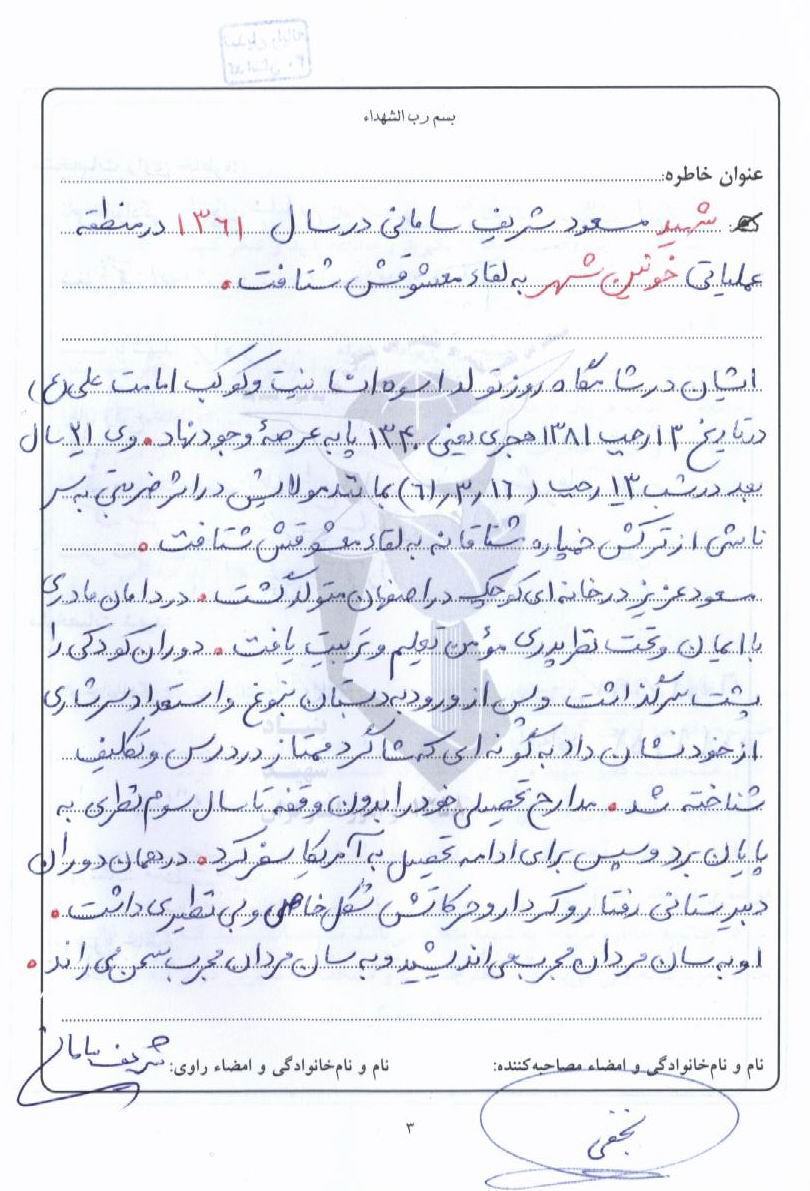 بسم رب الشهداء
عنوان خاطره:
شهید مسعود شریف سامانی در سال ۱۳۶۱ در منطقه
عملیاتی خونین شهر به لقاء معشوقش شتافت.
ایشان در شامگاه روز تولد اسوه انسانیت و کوکب امامت علی (ع)
در تاریخ ۱۳ رجب ۱۳۸۱ هجری یعنی ۱۳۴۰ پا به عرصۀ وجود نهاد. وی ۲۱ سال
بعد در شب ۱۳ رجب (۶۱٫۳٫۱۶) بمانند مولایش در اثر ضربتی به سر
ناشی از ترکش خمپاره مشتاقانه به لقاء معشوقش شتافت.
مسعود عزیز در خانه ای کوچک در اصفهان متولد گشت. در دامان مادری
با ایمان و تحت نظر پدری مؤمن تعلیم و تربیت یافت. دوران کودکی را
پشت سر گذاشت و پس از ورود به دبستان نبوغ و استعداد سرشاری
از خود نشان داد به گونه ای که شاگرد ممتاز در درس و تکلیف
شناخته شد. مدارج تحصیلی خود را بدون وقفه تا سال سوم نظری به
پایان برد و سپس برای ادامه تحصیل به آمریکا سفر کرد. در همان دوران
دبیرستانی رفتار و کردار و حرکاتش شکل خاص و بی نظیری داشت.
او به سان مردان مجرب می اندیشید و به سان مردان مجرب سخن می راند.
نام و نام‌خانوادگی و امضاء مصاحبه‌کننده: نام و نام‌خانوادگی و امضاء راوی: شریف سامانی
نجفی
۳